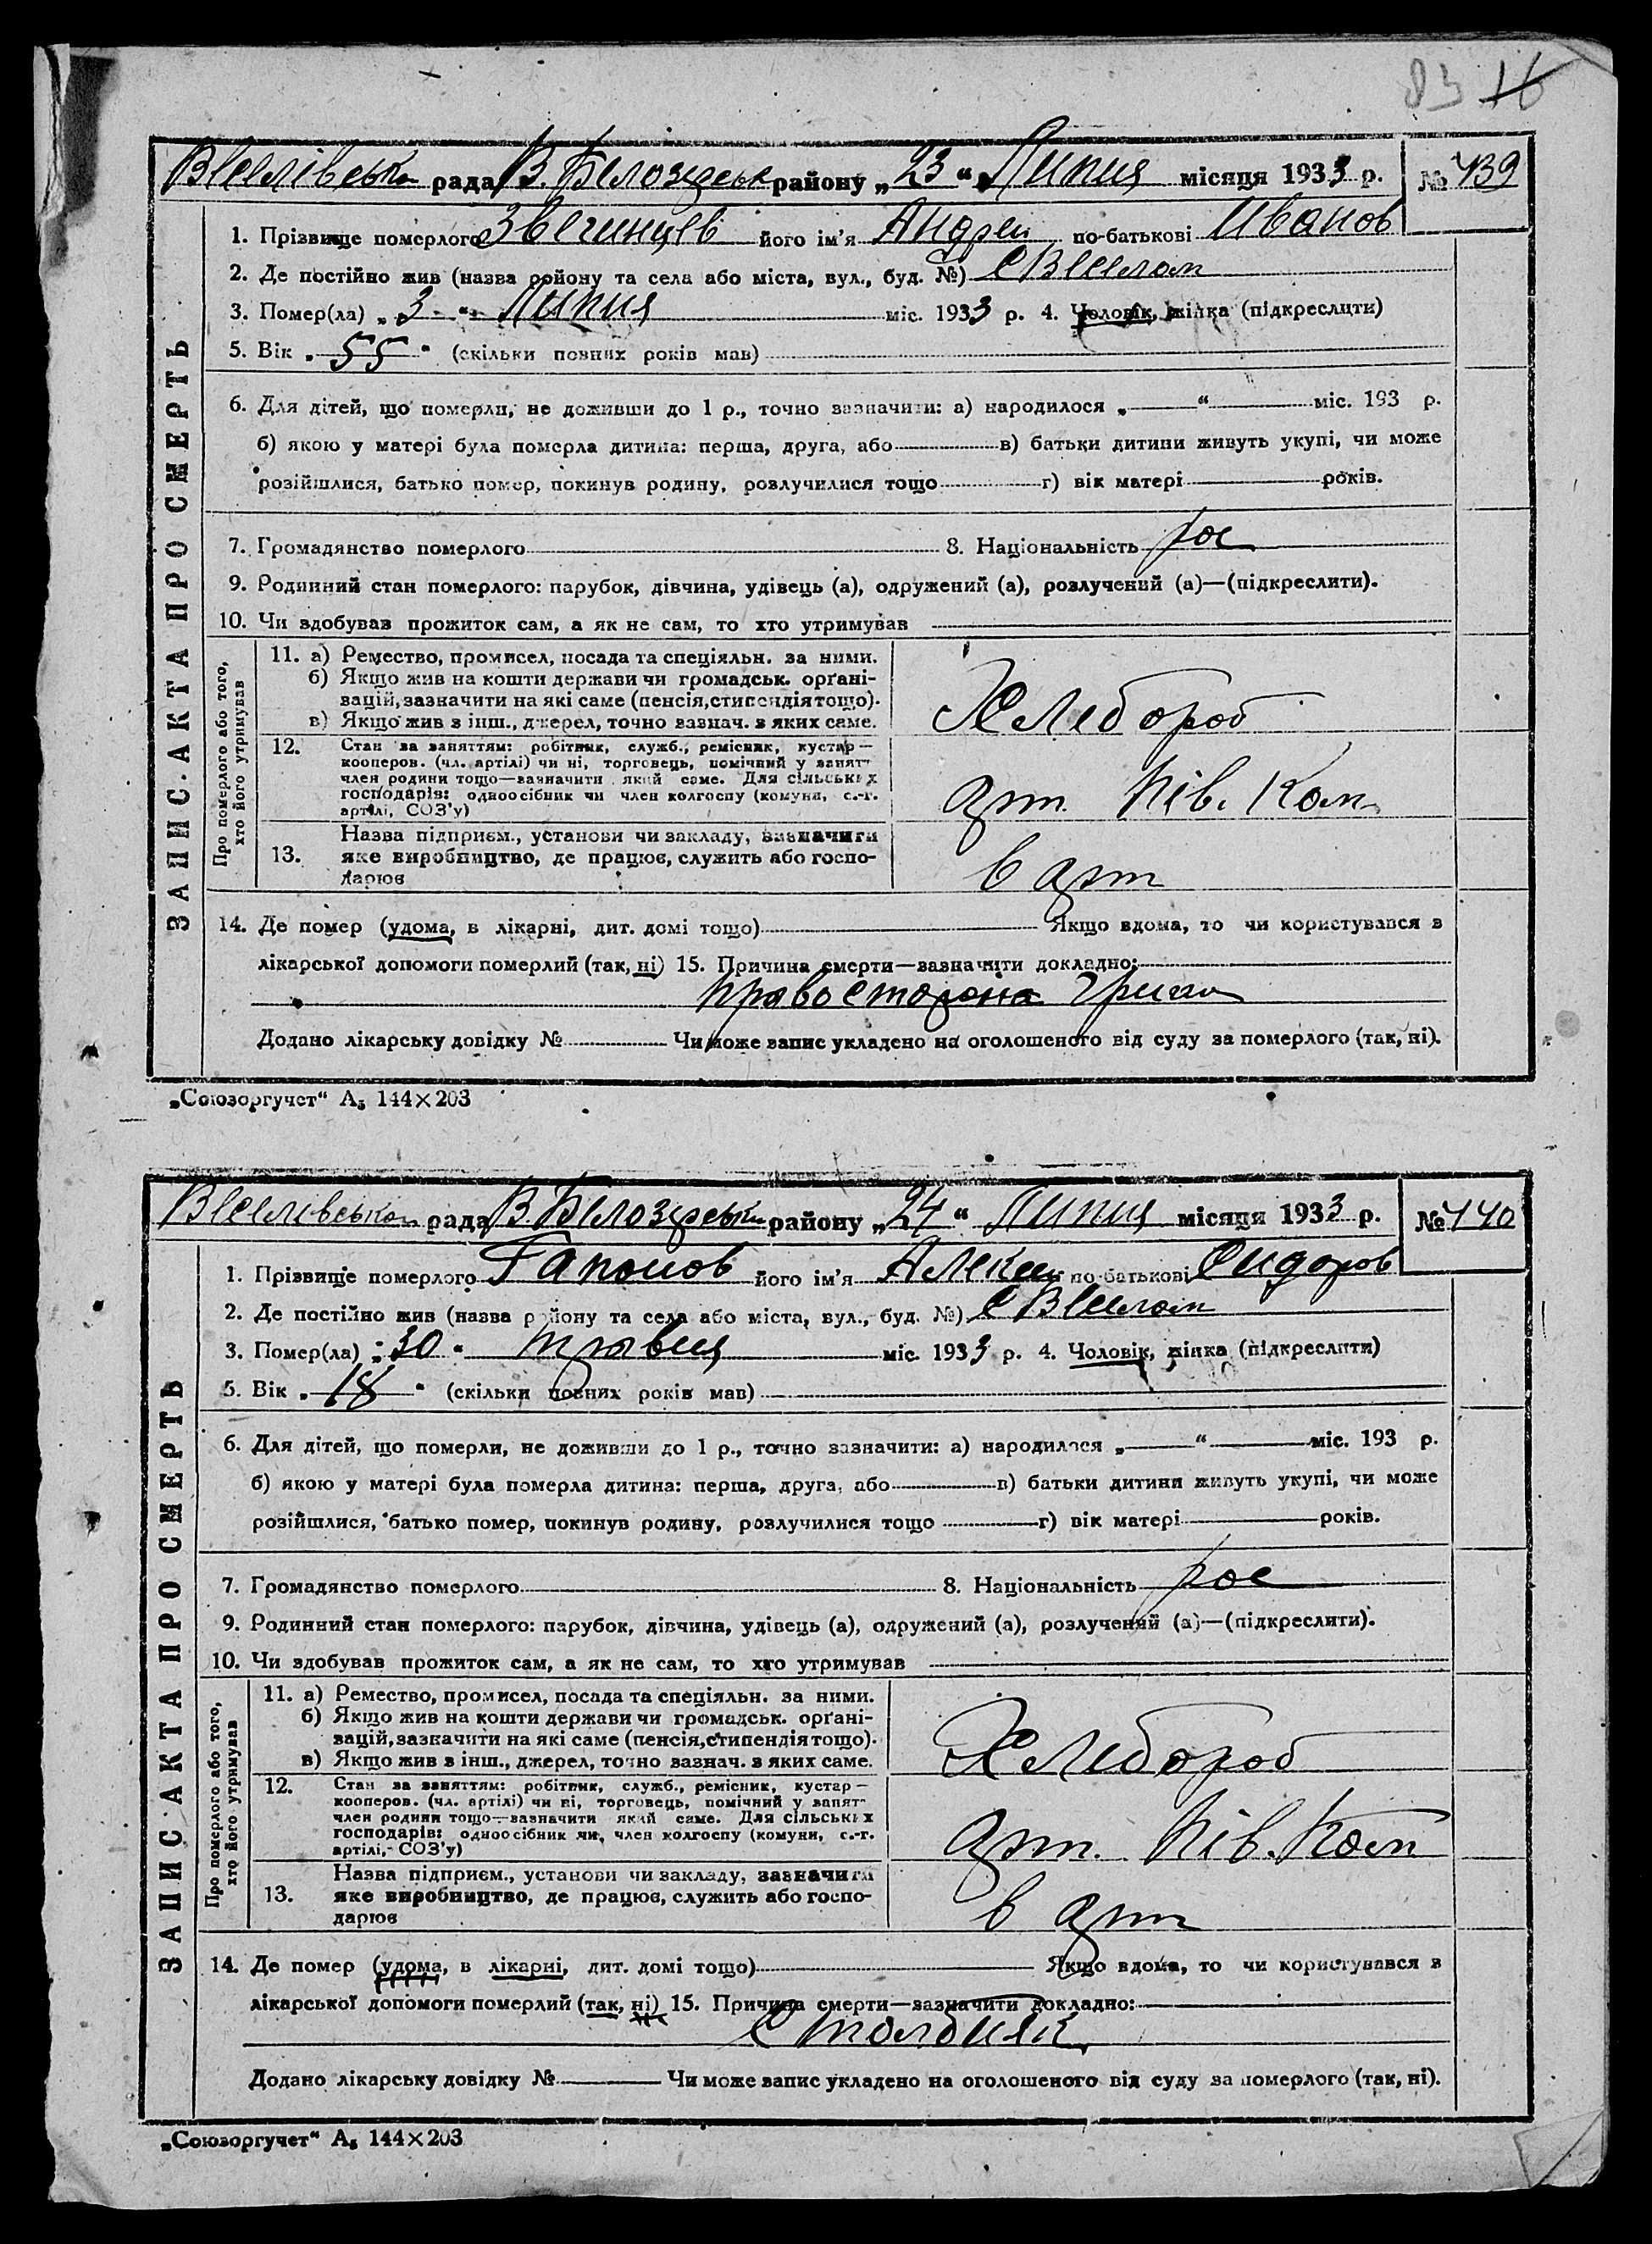 83 16
Веселівська рада В. Білозерськ району „23“ Липня місяця 1933 р. № 439
ЗАПИС АКТА ПРО СМЕРТЬ
1. Прізвище померлого Звегинцев його ім'я Андреи по-батькові Иванов
2. Де постійно жив (назва району та села або міста, вул., буд. №) с Веселом
3. Помер(ла) „3“ Липня міс. 1933 р. 4. Чоловік, жінка (підкреслити)
5. Вік „55“ (скільки повних років мав)
6. Для дітей, що померли, не доживши до 1 р., точно зазначити: а) народилося „ “ міс. 193 р.
б) якою у матері була померла дитина: перша, друга, або в) батьки дитини живуть укупі, чи може
розійшлися, батько помер, покинув родину, розлучилися тощо г) вік матері років.
7. Громадянство померлого 8. Національність рос
9. Родинний стан померлого: парубок, дівчина, удівець (а), одружений (а), розлучений (а)—(підкреслити).
10. Чи здобував прожиток сам, а як не сам, то хто утримував
Про померлого або того,
хто його утримував
11. а) Ремество, промисел, посада та спеціяльн. за ними.
б) Якщо жив на кошти держави чи громадськ. орґані-
зацій, зазначити на які саме (пенсія, стипендія тощо).
в) Якщо жив з інш., джерел, точно зазнач. з яких саме.
Хлебороб
12. Стан за заняттям: робітник, служб., ремісник, кустар—
кооперов. (чл. артілі) чи ні, торговець, помічний у занят-
член родини тощо—зазначити який саме. Для сільських
господарів: одноосібник чи член колгоспу (комуни, с.-г.
артілі, СОЗ'у)
арт. Нів. Ком
Назва підприєм., установи чи закладу, зазначити
13. яке виробництво, де працює, служить або госпо-
дарює
в арт
14. Де помер (удома, в лікарні, дит. домі тощо) Якщо вдома, то чи користувався в
лікарської допомоги померлий (так, ні) 15. Причина смерти—зазначити докладно:
правосторона
Додано лікарську довідку № Чи може запис укладено на оголошеного від суду за померлого (так, ні).
„Союзоргучет“ А₅ 144×203
Веселівська рада В. Білозерська району „24“ Липня місяця 1933 р. № 440
ЗАПИС АКТА ПРО СМЕРТЬ
1. Прізвище померлого Гапонов його ім'я Алексеи по-батькові Сидоров
2. Де постійно жив (назва району та села або міста, вул., буд. №) с Веселом
3. Помер(ла) „30“ травня міс. 1933 р. 4. Чоловік, жінка (підкреслити)
5. Вік „18“ (скільки повних років мав)
6. Для дітей, що померли, не доживши до 1 р., точно зазначити: а) народилося „ “ міс. 193 р.
б) якою у матері була померла дитина: перша, друга, або в) батьки дитини живуть укупі, чи може
розійшлися, батько помер, покинув родину, розлучилися тощо г) вік матері років.
7. Громадянство померлого 8. Національність рос
9. Родинний стан померлого: парубок, дівчина, удівець (а), одружений (а), розлучений (а)—(підкреслити).
10. Чи здобував прожиток сам, а як не сам, то хто утримував
Про померлого або того,
хто його утримував
11. а) Ремество, промисел, посада та спеціяльн. за ними.
б) Якщо жив на кошти держави чи громадськ. орґані-
зацій, зазначити на які саме (пенсія, стипендія тощо).
в) Якщо жив з інш., джерел, точно зазнач. з яких саме.
Хлебороб
12. Стан за заняттям: робітник, служб., ремісник, кустар—
кооперов. (чл. артілі) чи ні, торговець, помічний у занят-
член родини тощо—зазначити який саме. Для сільських
господарів: одноосібник чи, член колгоспу (комуни, с.-г.
артілі, СОЗ'у)
арт. Нів. Ком
Назва підприєм., установи чи закладу, зазначити
13. яке виробництво, де працює, служить або госпо-
дарює
в арт
14. Де помер (удома, в лікарні, дит. домі тощо) Якщо вдома, то чи користувався в
лікарської допомоги померлий (так, ні) 15. Причина смерти—зазначити докладно:
Столбняк
Додано лікарську довідку № Чи може запис укладено на оголошеного від суду за померлого (так, ні).
„Союзоргучет“ А₅ 144×203